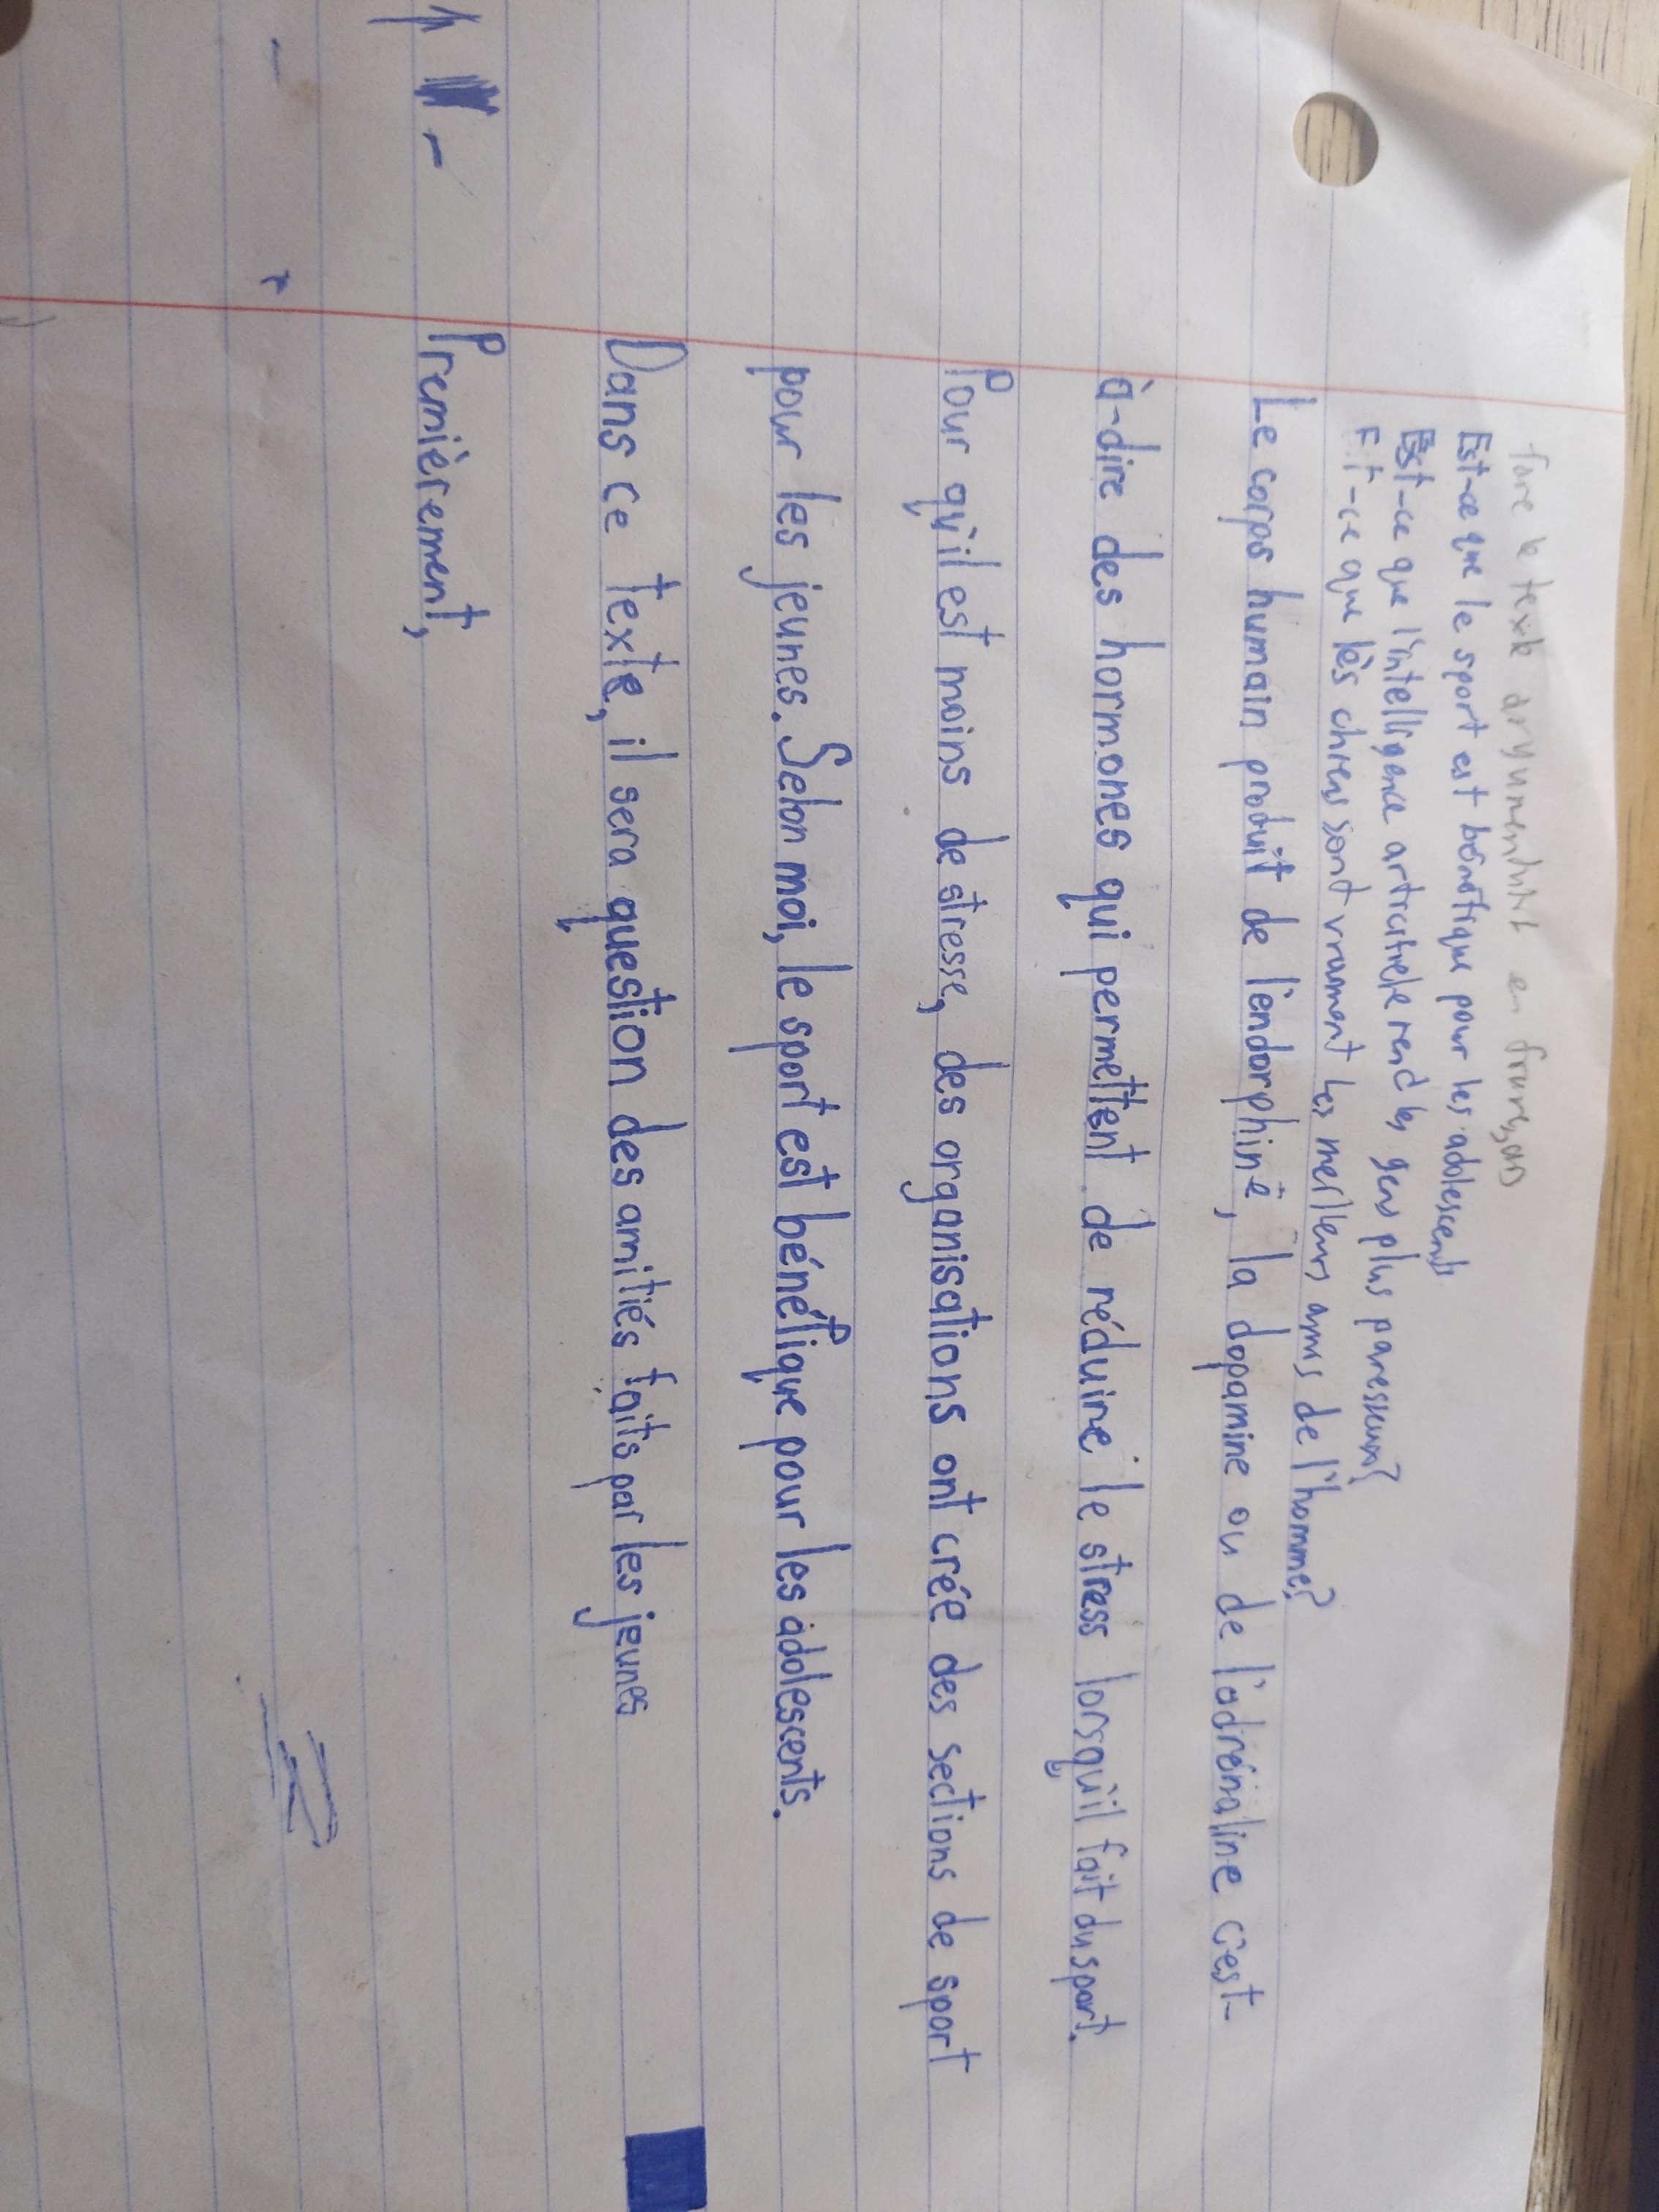 faire le texte argumentatif en français
Est-ce que le sport est bénéfique pour les adolescents
Est-ce que l'intelligence artificielle rend les gens plus paresseux?
Est-ce que les chiens sont vraiment les meilleurs amis de l'homme?
Le corps humain produit de l'endorphine, la dopamine ou de l'adrénaline c'est-
à-dire des hormones qui permettent de réduire le stress lorsqu'il fait du sport.
Pour qu'il est moins de stresse, des organisations ont crée des sections de sport
pour les jeunes. Selon moi, le sport est bénéfique pour les adolescents.
Dans ce texte, il sera question des amitiés faits par les jeunes
Premièrement,